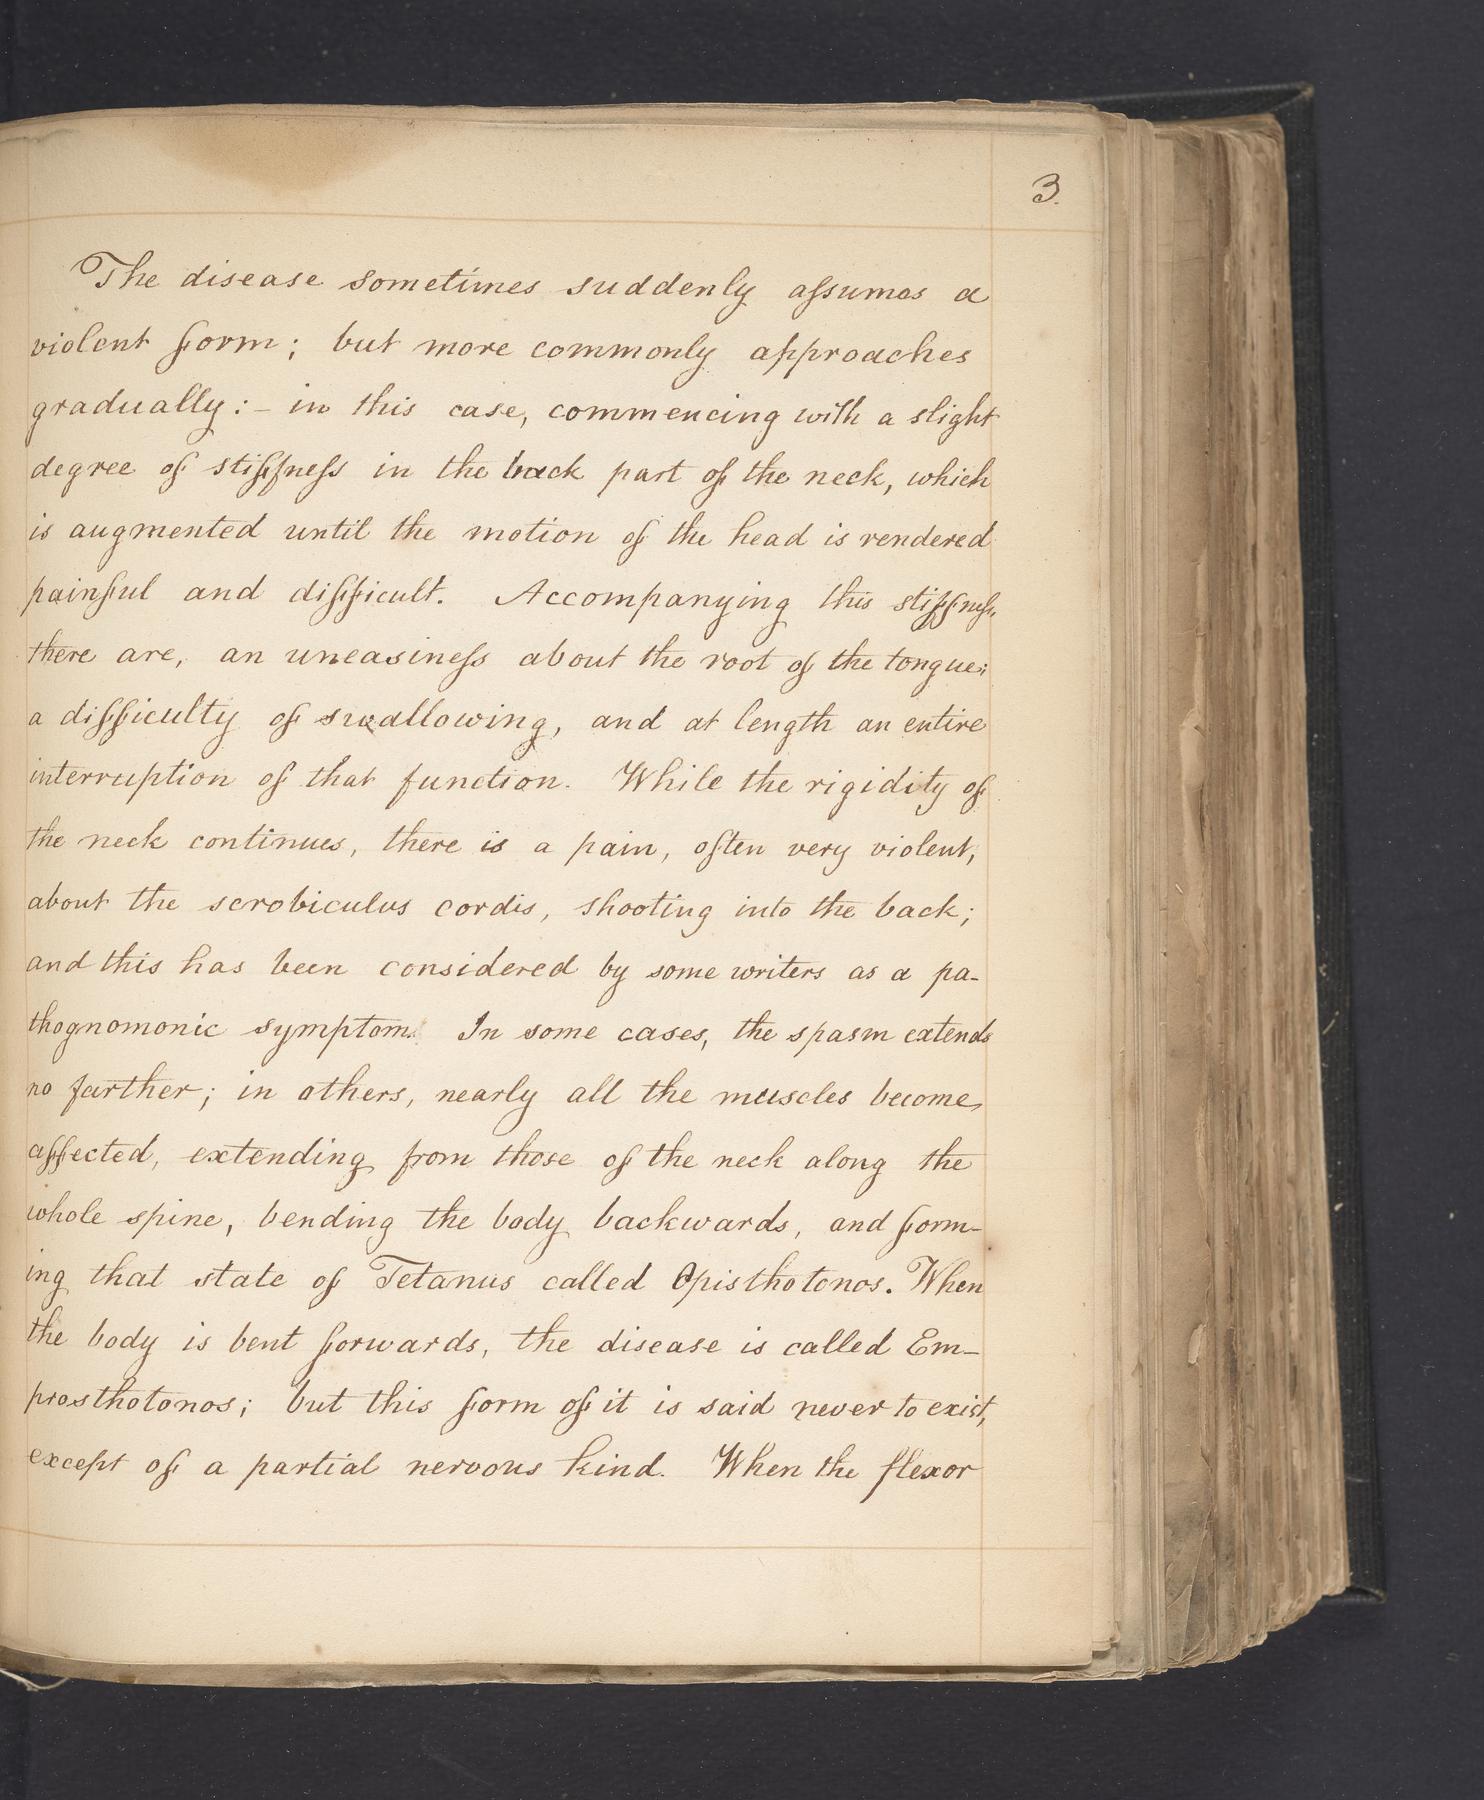 3.
The disease sometimes suddenly aſsumes a
violent form; but more commonly approaches
gradually:– in this case, commencing with a slight
degree of stiffneſs in the back part of the neck, which
is augmented until the motion of the head is rendered
painful and difficult. Accompanying this stiffneſs,
there are, an uneasineſs about the root of the tongue;
a difficulty of swallowing, and at length an entire
interruption of that function. While the rigidity of
the neck continues, there is a pain, often very violent,
about the scrobiculus cordis, shooting into the back;
and this has been considered by some writers as a pa-
thognomonic symptom. In some cases, the spasm extends
no farther; in others, nearly all the muscles become,
affected, extending from those of the neck along the
whole spine, bending the body backwards, and form-
ing that state of Tetanus called Opisthotonos. When
the body is bent forwards, the disease is called Em-
prosthotonos; but this form of it is said never to exist,
except of a partial nervous kind. When the flexor